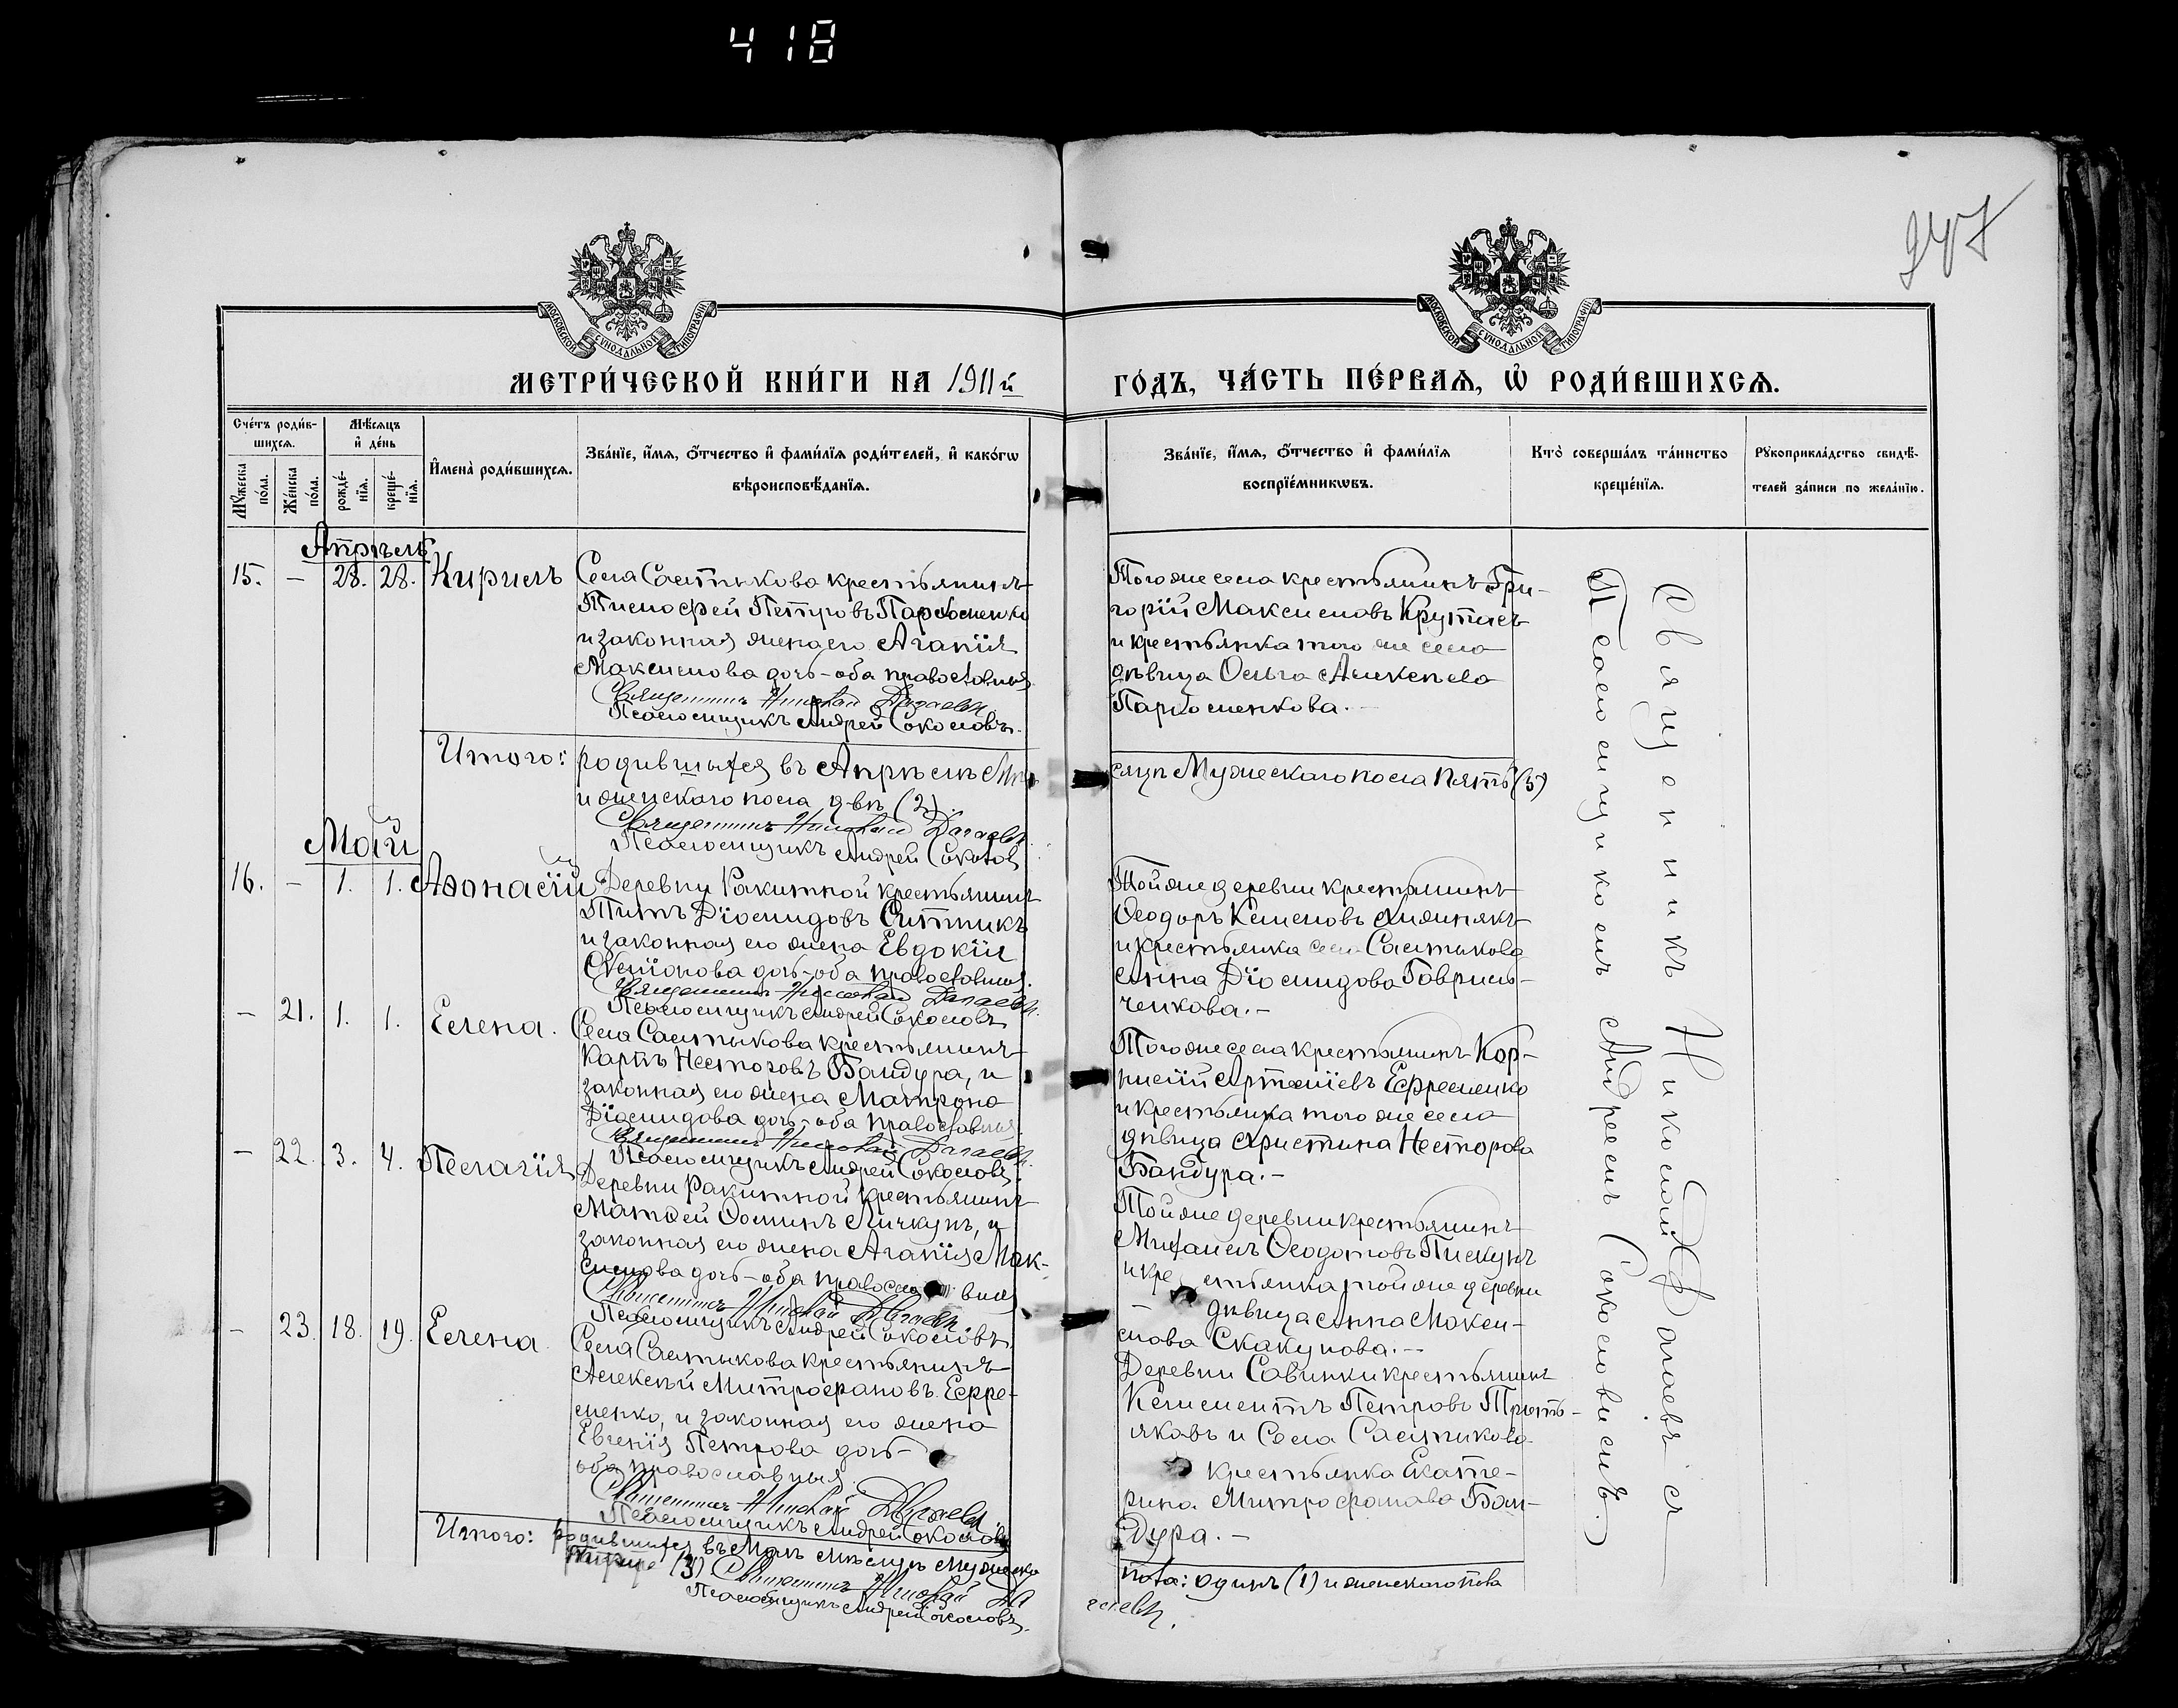 418
247
МОСКОВСКОЙ СѴНОДАЛЬНОЙ ТИПОГРАФІИ
МОСКОВСКОЙ СѴНОДАЛЬНОЙ ТИПОГРАФІИ
МЕТРИ́ЧЕСКОЙ КНИ́ГИ НА 1911й
ГО́ДЪ, ЧА́СТЬ ПЕ́РВАѦ, Ѡ РОДИ́ВШИХСѦ.
Сче́тъ роди́в-
шихсѧ.
Мѣ́сѧцъ
и҆ де́нь
Мꙋ́жеска
по́ла.
Же́нска
по́ла.
рожде́-
нїѧ.
креще́-
нїѧ.
И҆мена̀ роди́вшихсѧ.
Зва́нїе, и҆́мѧ, ѻ҆́тчество и҆ фами́лїѧ роди́телей, и҆ како́гѡ
вѣроисповѣ́данїѧ.
Зва́нїе, и҆́мѧ, ѻ҆́тчество и҆ фами́лїѧ
воспрїе́мникѡвъ.
Кто̀ соверша́лъ та́инство
креще́нїѧ.
Рꙋкоприкла́дство свидѣ́-
телей за́писи по жела́нїю.
Апрѣль
15. — 28. 28. Кирилъ
Села Салтыкова крестьянинъ
Тимофей Петровъ Пархоменко
и законная жена его Агапія
Максимова дочь – оба православныя.
Священникъ Николай Дагаевъ.
Псаломщикъ Андрей Соколовъ.
Того же села крестьянинъ Гри-
горій Максимовъ Круташ
и крестьянка того же села
дѣвица Ольга Алексѣева
Пархоменкова. —
Итого: родившихся въ Апрѣлѣ Мѣ-
сяцѣ Мужескаго пола пять (5)
и женскаго пола двѣ (2).
Священникъ Николай Дагаевъ.
Псаломщикъ Андрей Соколов
Май
16. — 1. 1. Аѳонасій
Деревни Ракитной крестьянинъ
Титъ Діомидовъ Ситникъ
и законная его жена Евдокія
Семіонова дочь – оба православныя.
Священникъ Николай Дагаевъ.
Псаломщикъ Андрей Соколовъ
Той же деревни крестьянинъ
Ѳеодоръ
и крестьянка села Салтыкова
Анна Діомидова Гавриль-
ченкова. —
— 21. 1. 1. Елена.
Села Салтыкова крестьянинъ
Карпъ Несторовъ Бандура, и
законная его жена Матрона
Діомидова дочь – оба православныя.
Священникъ Николай Дагаевъ.
Псаломщикъ Андрей Соколовъ.
Того же села крестьянинъ Кор-
нилій Артеміевъ Ефременко
и крестьянка того же села
дѣвица Христина Несторова
Бандура. —
— 22. 3. 4. Пелагія
Деревни Ракитной крестьянинъ
Матѳей Ѳоминъ Личкунъ, и
законная его жена Агапія Мак-
симова дочь – оба православныя
Священникъ Николай Дагаевъ.
Псаломщикъ Андрей Соколовъ.
Той же деревни крестьянинъ
Михаилъ Ѳеодотовъ Пискунъ
и крестьянка той же деревни
— дѣвица Анна Макси-
мова Скакунова. —
— 23. 18. 19. Елена.
Села Салтыкова крестьянинъ
Алексѣй Митрофановъ Ефре-
менко, и законная его жена
Евгенія Петрова дочь –
оба православныя.
Священникъ Николай Дагаевъ.
Псаломщикъ Андрей Соколовъ
Деревни Савинки крестьянинъ
Климентъ Петровъ Треть-
яковъ и Села Салтыкова
крестьянка Екате-
рина Митрофанова Бан-
дура. —
Итого: родившихся въ Маѣ мѣсяцѣ Мужеска
пола: одинъ (1) и женскаго пола
(3) Священникъ Николай Дагаевъ.
Псаломщикъ Андрей Соколовъ.
Священникъ Николай Дагаевъ съ
Псаломщикомъ Андреемъ Соколовымъ.